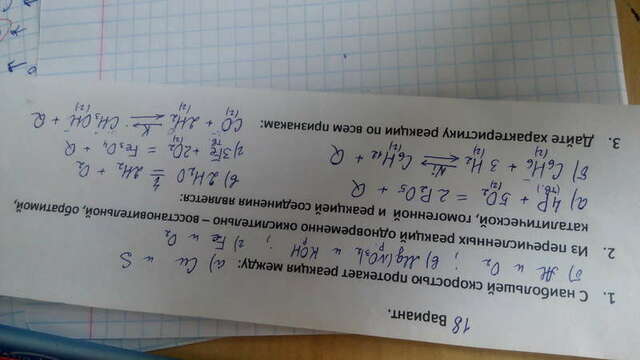 18 Вариант.
1. С наибольшей скоростью протекает реакция между: а) Cu и S
б) Al и O₂ ; в) Mg(NO₃)₂ и KOH ; г) Fe и O₂
                    р          р
2. Из перечисленных реакций одновременно окислительно – восстановительной, обратимой,
каталитической, гомогенной и реакцией соединения является:
а) 4P + 5O₂ = 2P₂O₅ + Q
(тв.) (г)
б) C₆H₆ + 3H₂ ⇄ C₆H₁₂ + Q
(г) (г) Ni (г)
в) 2H₂O = 2H₂ + O₂
г) 3Fe + 2O₂ = Fe₃O₄ + Q
тв (г)
CO + 2H₂ ⇄ CH₃OH + Q
(г) (г) K (г)
3. Дайте характеристику реакции по всем признакам: